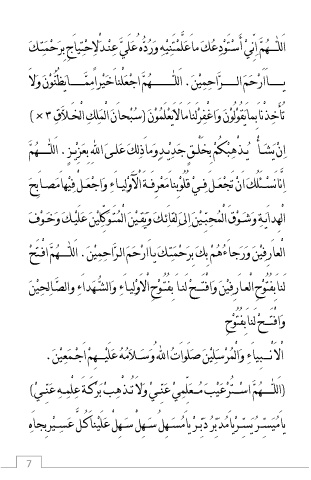 اَللّٰهُمَّ اِنِّيْ أَسْتَوْدِعُكَ مَا عَلَّمْتَنِيْهِ وَرُدُّهُ عَلَيَّ عِنْدَ لْاِحْتِيَاجِ بِرَحْمَتِكَ
يَا اَرْحَمَ الرَّاحِمِيْنَ . اَللّٰهُمَّ اجْعَلْنَا خَيْرًا مِمَّا يَظُنُّوْنَ وَلَا
تُأَخِذْنَا بِمَا يَقُوْلُوْنَ وَاغْفِرْلَنَا مَا لَا يَعْلَمُوْنَ (سُبْحَانَ الْمَلِكِ الْخَلَّاقِ ٣ ×)
اِنْ يَشَأْ يُذْهِبْكُمْ بِخَلْقٍ جَدِيْدٍ وَمَا ذَلِكَ عَلَى اللهِ بِعَزِيْزٍ . اَللّٰهُمَّ
اِنَّا نَسْئَلُكَ اَنْ تَجْعَلَ فِيْ قُلُوْبِنَا مَعْرِفَةَ الْأَوْلِيَاءِ وَاجْعَلْ فِيْهَا مَصَابِحَ
الْهِدَايَةِ وَشَوْقَ الْمُحِبِّيْنَ اِلَى لِقَائِكَ وَيَقِيْنَ الْمُتَوَكِّلِيْنَ عَلَيْكَ وَخَوْفَ
الْعَارِفِيْنَ وَرَجَاءُهُمْ بِكَ بِرَحْمَتِكَ يَا اَرْحَمَ الرَّاحِمِيْنَ . اَللّٰهُمَّ افْتَحْ
لَنَا بِفُتُوْحِ الْعَارِفِيْنَ وَافْتَحْ لَنَا بِفُتُوْحِ الْأَوْلِيَاءِ وَالشُّهَدَاءِ وَالصَّالِحِيْنَ
وَافْتَحْ لَنَا بِفُتُوْحِ
الْأَنْبِيَاءِ وَالْمُرْسَلِيْنَ صَلَوَاتُ اللهُ وَسَلَامُهُ عَلَيْهِمْ اَجْمَعِيْنَ .
(اَللّٰهُمَّ اسْتُرْ عَيْبَ مُعَلِّمِيْ عَنِّيْ وَلَا تُذْهِبْ بَرَكَةَ عِلْمِهِ عَنِّيْ)
يَا مُيَسِّرُ يَسِّرْ يَا مُدَبِّرُ دَبِّرْ يَا مُسَهِّلُ سَهِّلْ سَهِّلْ عَلَيْنَا كُلَّ عَسِيْرٍ بِجَاهِ
7